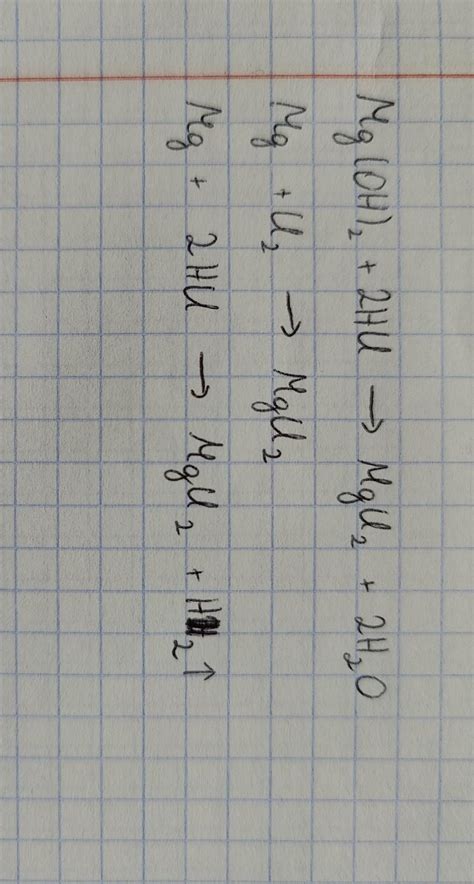 Mg(OH)₂ + 2HCl → MgCl₂ + 2H₂O
Mg + Cl₂ → MgCl₂
Mg + 2HCl → MgCl₂ + H₂↑